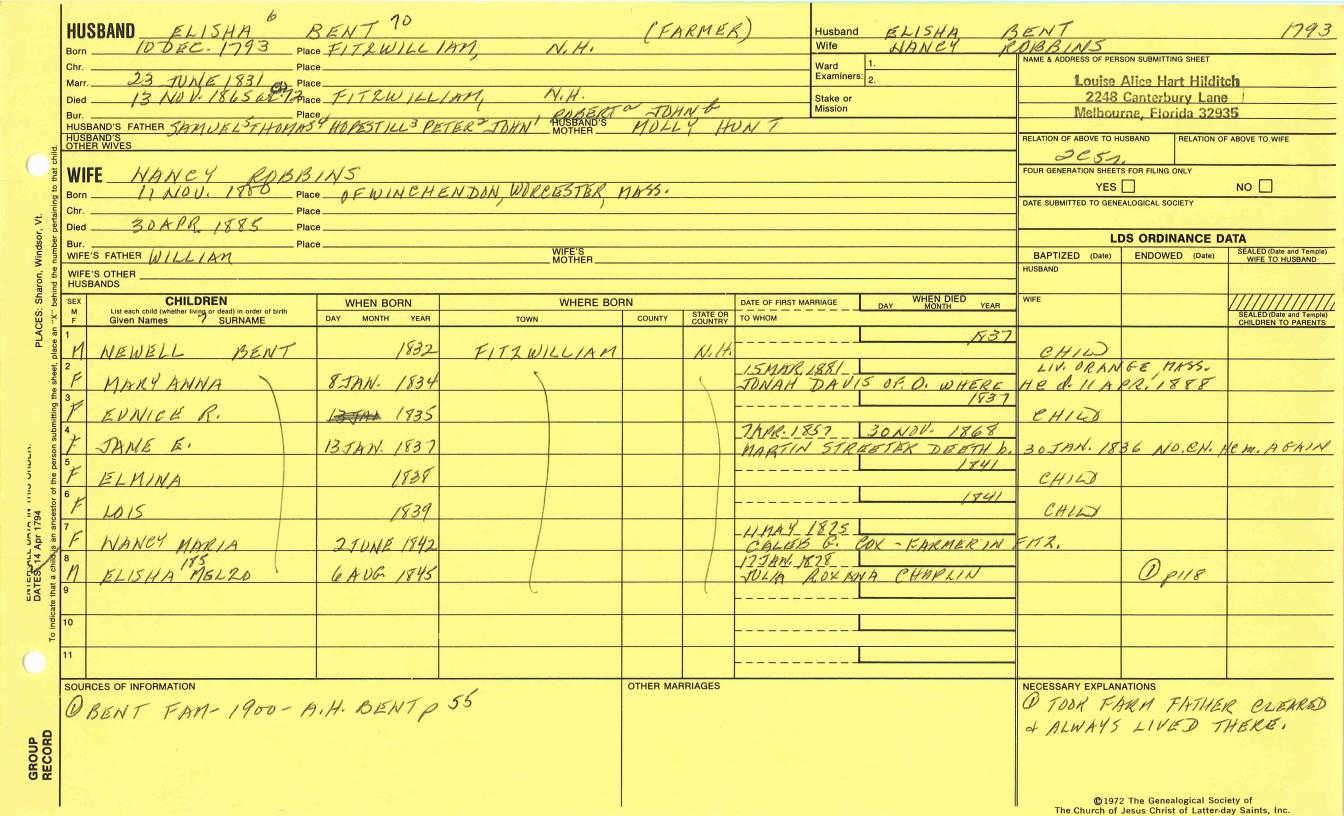 HUSBAND ELISHA 6 BENT 70 (FARMER)
Born 10 DEC. 1793 Place FITZWILLIAM, N.H.
Chr. Place
Marr. 23 JUNE 1831 Place
Died 13 NOV. 1865 ae. 72 Place FITZWILLIAM, N.H.
Bur. Place ROBERT a JOHN b
HUSBAND'S FATHER SAMUEL 5 THOMAS 4 HOPESTILL 3 PETER 2 JOHN 1 HUSBAND'S MOTHER MOLLY HUNT
HUSBAND'S OTHER WIVES
WIFE NANCY ROBBINS
Born 11 NOV. 1800 Place OF WINCHENDON, WORCESTER, MASS.
Chr. Place
Died 30 APR. 1885 Place
Bur. Place
WIFE'S FATHER WILLIAM WIFE'S MOTHER
WIFE'S OTHER HUSBANDS
Husband ELISHA BENT 1793
Wife NANCY ROBBINS
Ward Examiners: 1.
2.
Stake or Mission
NAME & ADDRESS OF PERSON SUBMITTING SHEET
Louise Alice Hart Hilditch
2248 Canterbury Lane
Melbourne, Florida 32935
RELATION OF ABOVE TO HUSBAND RELATION OF ABOVE TO WIFE
2C5r.
FOUR GENERATION SHEETS FOR FILING ONLY
YES NO
DATE SUBMITTED TO GENEALOGICAL SOCIETY
LDS ORDINANCE DATA
BAPTIZED (Date) ENDOWED (Date) SEALED (Date and Temple) WIFE TO HUSBAND
HUSBAND
WIFE
SEALED (Date and Temple) CHILDREN TO PARENTS
SEX M F CHILDREN WHEN BORN WHERE BORN DATE OF FIRST MARRIAGE WHEN DIED
List each child (whether living or dead) in order of birth
Given Names 7 SURNAME DAY MONTH YEAR TOWN COUNTY STATE OR COUNTRY TO WHOM DAY MONTH YEAR
1 M NEWELL BENT 1832 FITZWILLIAM N.H. 1837 CHILD
2 F MARY ANNA 8 JAN. 1834 15 MAR. 1881 LIV. ORANGE, MASS.
JONAH DAVIS OF O. WHERE He d. 11 APR. 1888
3 F EUNICE R. 1835 1837 CHILD
4 F JANE E. 13 JAN. 1837 7 APR. 1857 30 NOV. 1868
MARTIN STREETER DEETH b. 30 JAN. 1836 NO.CH. He m. AGAIN
5 F ELMINA 1838 1841 CHILD
6 F LOIS 1839 1841 CHILD
7 F NANCY MARIA 2 JUNE 1842 11 MAY 1875
CALEB C. COX - FARMER IN FITZ.
8 M ELISHA 185 6 AUG. 1845 17 JAN. 1878
JULIA ROXANA CHAPLIN ① p118
9
10
11
SOURCES OF INFORMATION
① BENT FAM- 1900- A.H. BENT p 55
OTHER MARRIAGES
NECESSARY EXPLANATIONS
① TOOK FARM FATHER CLEARED
& ALWAYS LIVED THERE.
©1972 The Genealogical Society of
The Church of Jesus Christ of Latter-day Saints, Inc.
PLACES: Sharon, Windsor, Vt.
DATES: 14 Apr 1794
To indicate that a child is an ancestor of the person submitting the sheet, place an "X" behind the number pertaining to that child.
GROUP RECORD